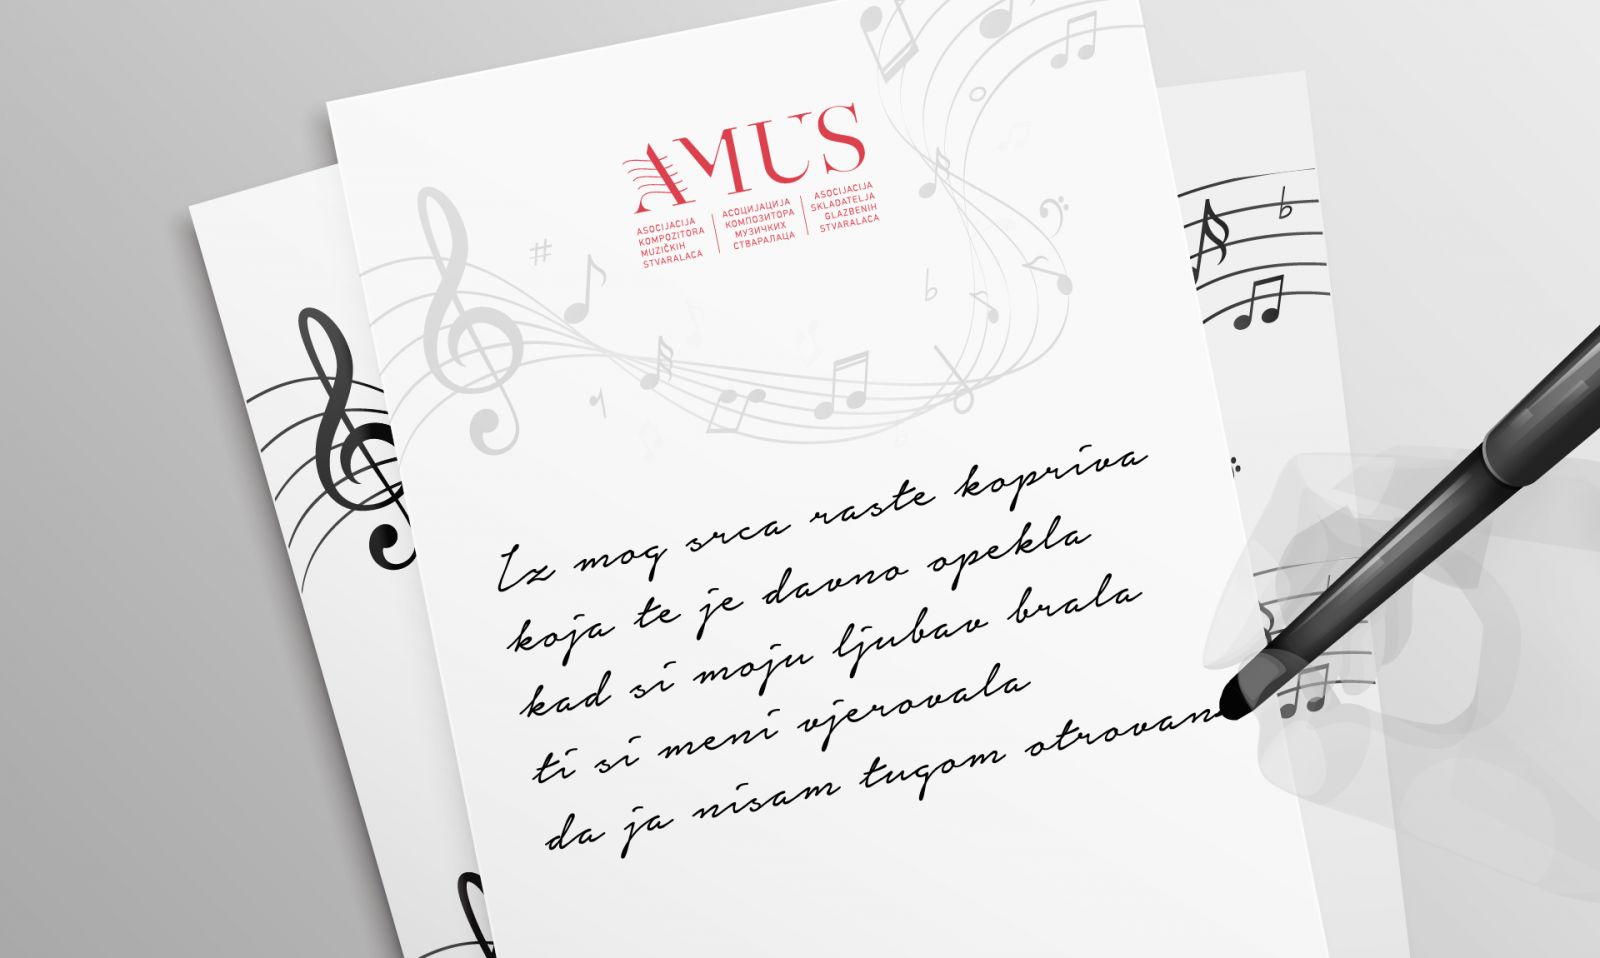 AMUS
ASOCIJACIJA
KOMPOZITORA
MUZIČKIH
STVARALACA
АСОЦИЈАЦИЈА
КОМПОЗИТОРА
МУЗИЧКИХ
СТВАРАЛАЦА
ASOCIJACIJA
SKLADATELJA
GLAZBENIH
STVARALACA
Iz mog srca raste kopriva
koja te je davno opekla
kad si moju ljubav brala
ti si meni vjerovala
da ja nisam tugom otrovan